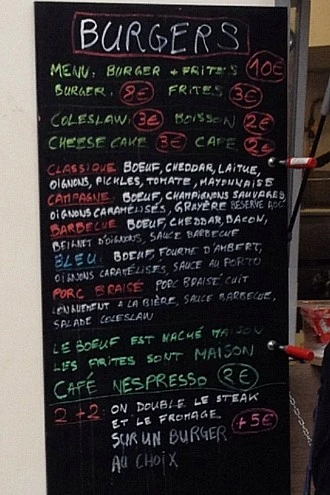 BURGERS
MENU: BURGER + FRITES 10€
BURGER: 8€ FRITES 3€
COLESLAW: 3€ BOISSON 2€
CHEESE CAKE 3€ CAFÉ 2€
CLASSIQUE BOEUF, CHEDDAR, LAITUE,
OIGNONS, PICKLES, TOMATE, MAYONNAISE
CAMPAGNE: BOEUF, CHAMPIGNONS SAUVAGES
OIGNONS CARAMELISÉS, GRUYÈRE RESERVE AOC
BARBECUE BOEUF, CHEDDAR, BACON,
BEIGNET D'OIGNONS, SAUCE BARBECUE
BLEU: BOEUF, FOURME D'AMBERT,
OIGNONS CARAMELISES, SAUCE AU PORTO
PORC BRAISÉ PORC BRAISÉ CUIT
LONGUEMENT A LA BIÈRE, SAUCE BARBECUE,
SALADE COLESLAW
LE BOEUF EST HACHÉ MAISON
LES FRITES SONT MAISON
CAFÉ NESPRESSO 2€
2+2: ON DOUBLE LE STEAK
ET LE FROMAGE +5€
SUR UN BURGER
AU CHOIX